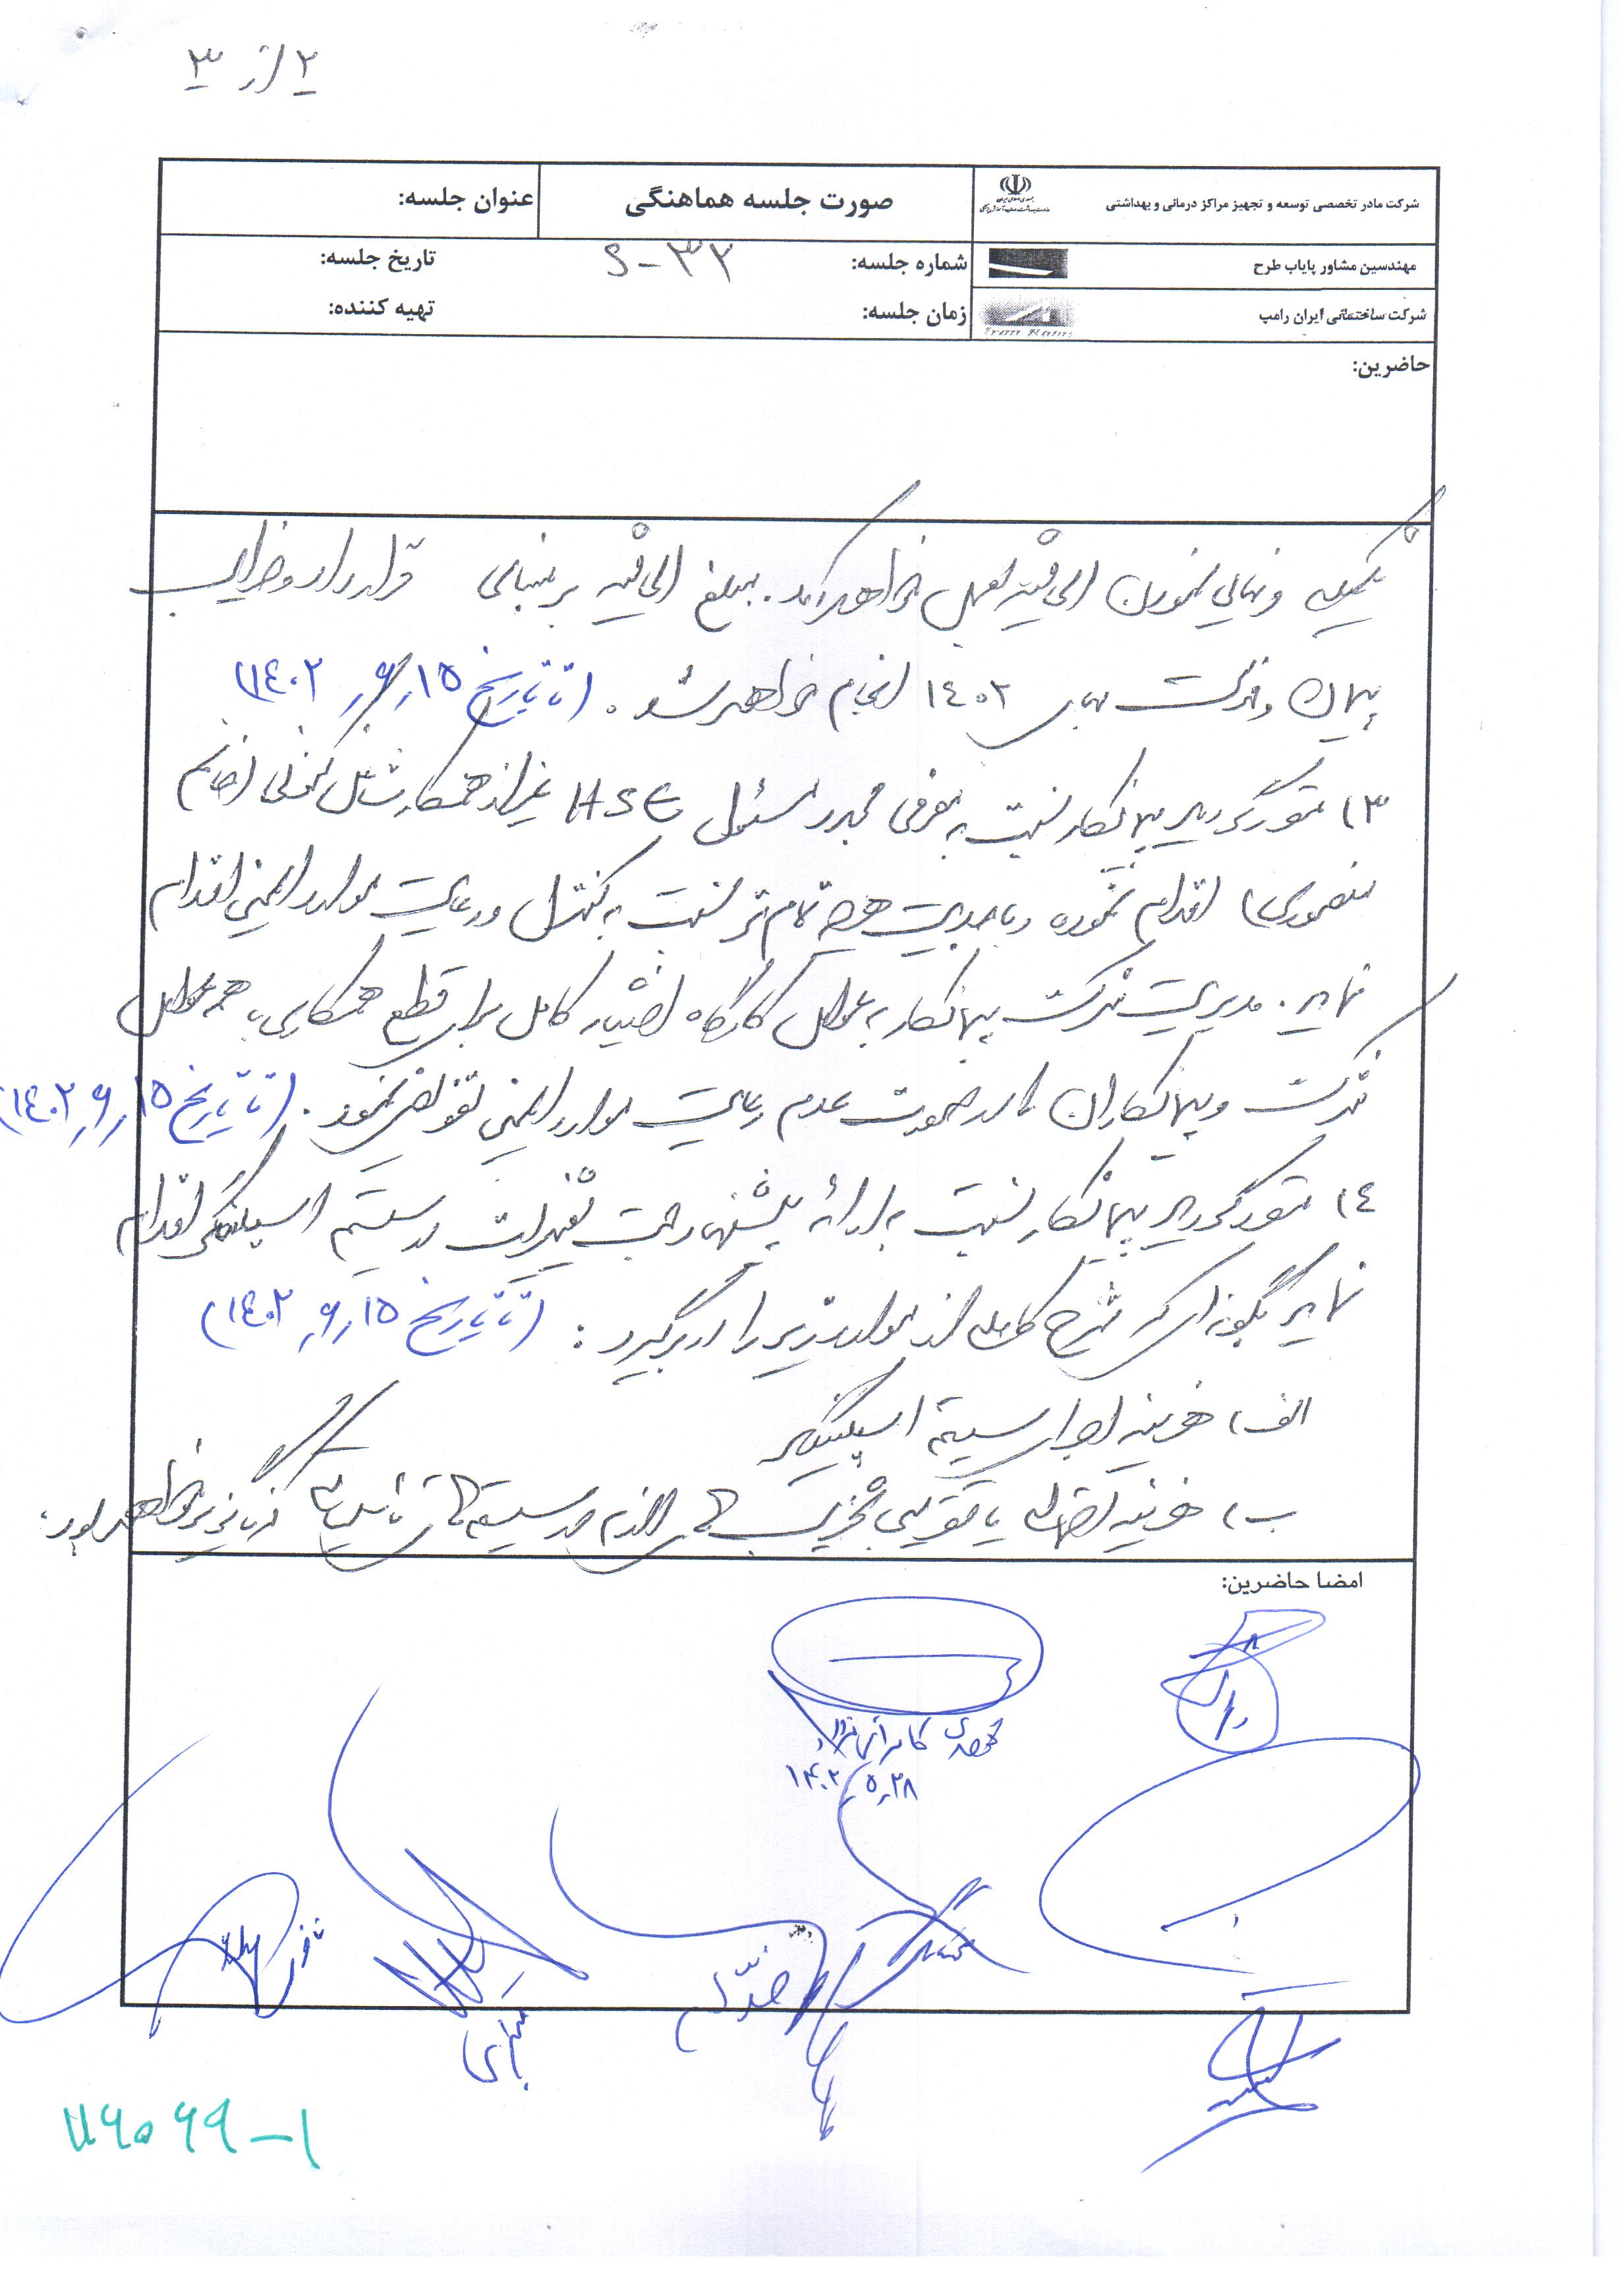 ۲ از ۳
شرکت مادر تخصصی توسعه و تجهیز مراکز درمانی و بهداشتی
صورت جلسه هماهنگی
عنوان جلسه:
مهندسین مشاور پایاب طرح
شماره جلسه: S-۳۲
تاریخ جلسه:
شرکت ساختمانی ایران رامپ
زمان جلسه:
تهیه کننده:
حاضرین:
تکمیل و نهایی نمودن الحاقیه بعمل خواهد آمد. مبلغ الحاقیه بر مبنای قرارداد و ضرایب
پیمان و فهرست بهای ۱٤۰۲ انجام خواهد شد. (تا تاریخ ۱٥ر۶ر۱٤۰۲)
۱۳) مقرر گردید پیمانکار نسبت به معرفی مجدد مسئول HSE غیر از همکار شاغل کنونی (خانم
منصوری) اقدام نموده و با جدیت هر چه تمام تر نسبت به کنترل و رعایت موارد ایمنی اقدام
نماید. مدیریت شرکت پیمانکار به عوامل کارگاه اختیار کامل برای قطع همکاری با همه عوامل
شرکت و پیمانکاران در صورت عدم رعایت موارد ایمنی تفویض نمود. (تا تاریخ ۱٥ر۶ر۱٤۰۲)
۱٤) مقرر گردید پیمانکار نسبت به ارائه پیشنهاد جهت تغییرات در سیستم اسپلینگر اقدام
نماید بگونه ای که شرح کاملی از موارد زیر را در برگیرد: (تا تاریخ ۱٥ر۶ر۱٤۰۲)
الف) هزینه اجرای سیستم اسپلینگر
ب) هزینه تقریبی تخریب های لازم در سیستم های تاسیساتی که ناگزیر خواهد بود.
امضا حاضرین:
۱۴۰۲ر۵ر۲۸
۱۱۶۰۶۹-۱